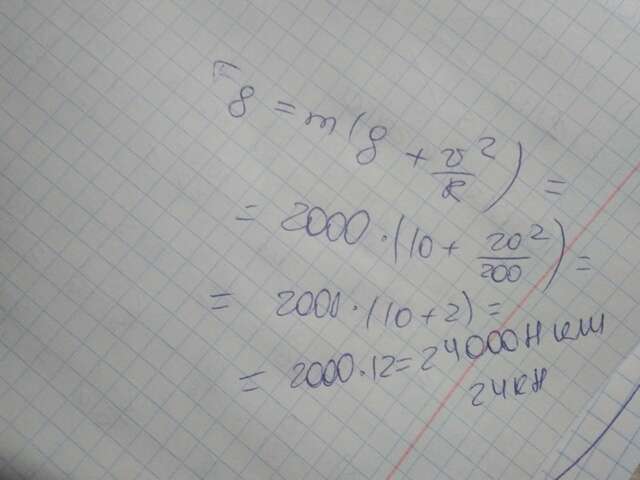 Fg = m(g + v²/R) =
= 2000·(10 + 20²/200) =
= 2000·(10+2) =
= 2000·12 = 24000 Н или
24 кН